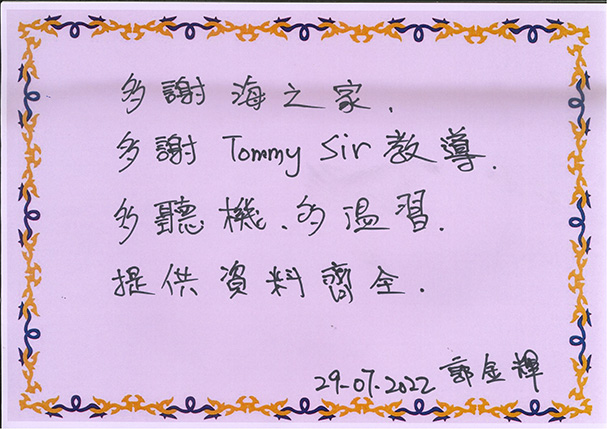 多謝海之家.
多謝 Tommy Sir 教導.
多聽機、多溫習.
提供資料齊全.
29-07-2022 郭金輝